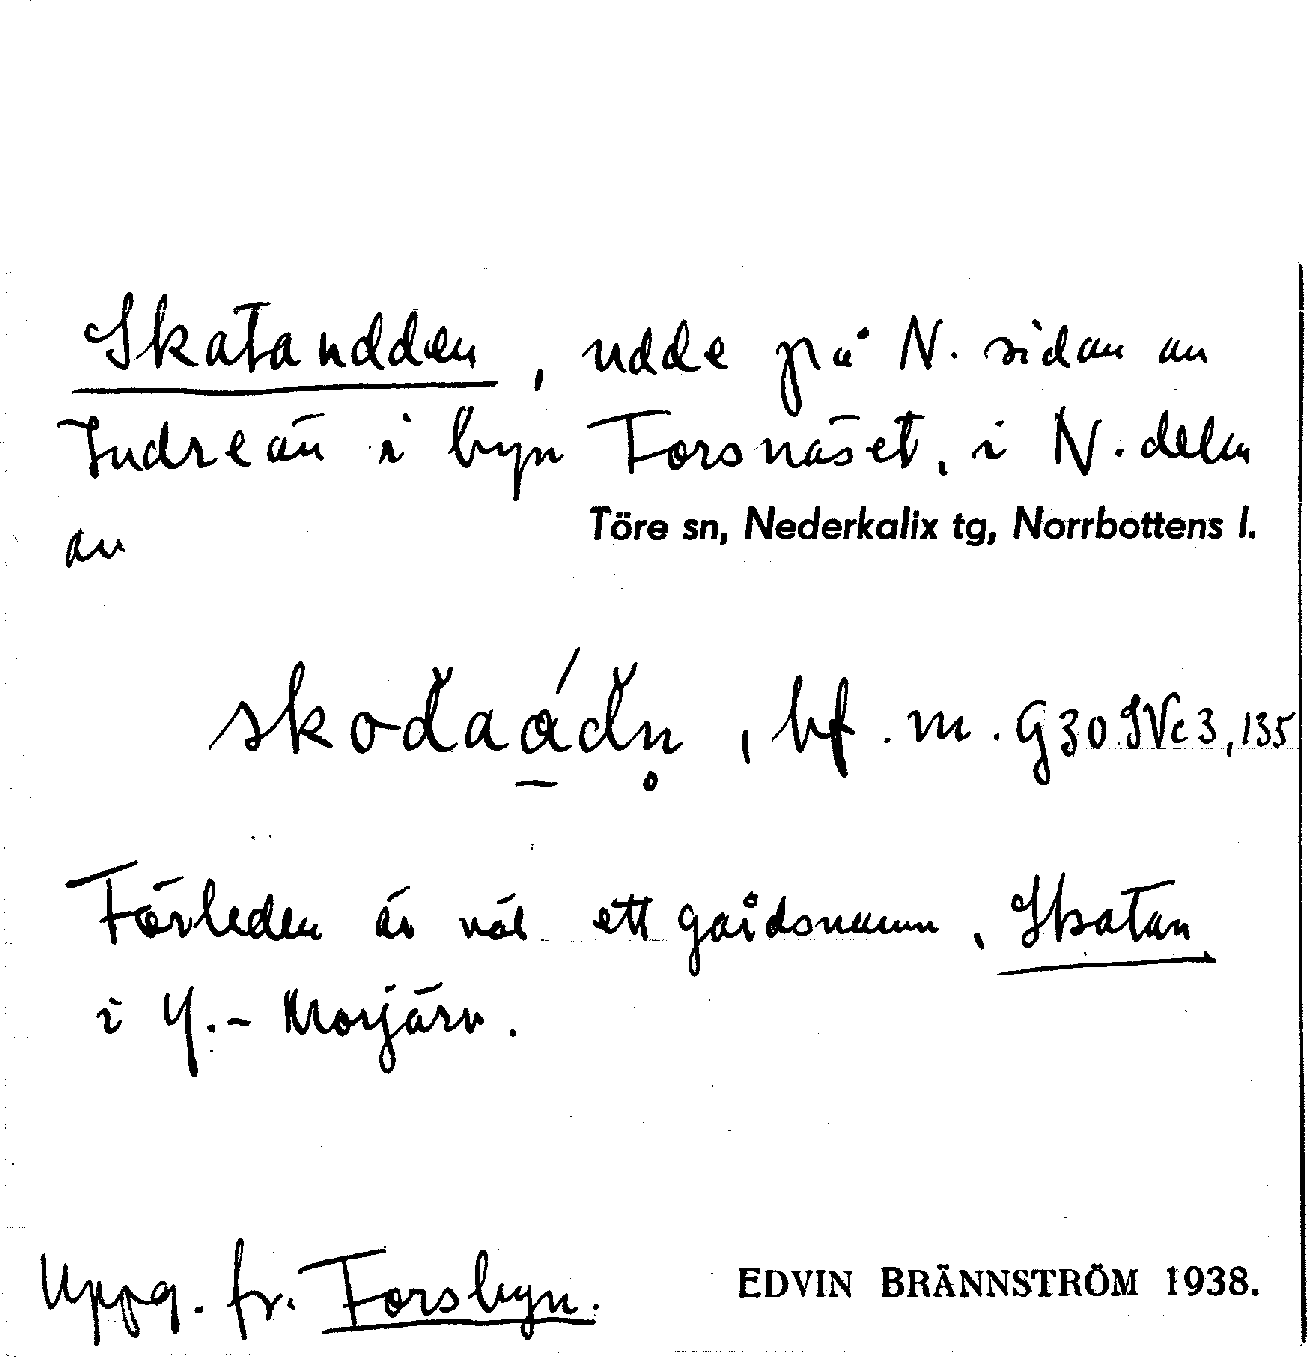 Skataudden, udde på N. sidan av
Indreån i byn Forsnäset, i N. delen
av Töre sn, Nederkalix tg, Norrbottens l.
bf. m.
Förleden är väl ett gårdsnamn, Skatan
i Y.- Morjärv.
Uppg. fr. Forsbyn.
EDVIN BRÄNNSTRÖM 1938.